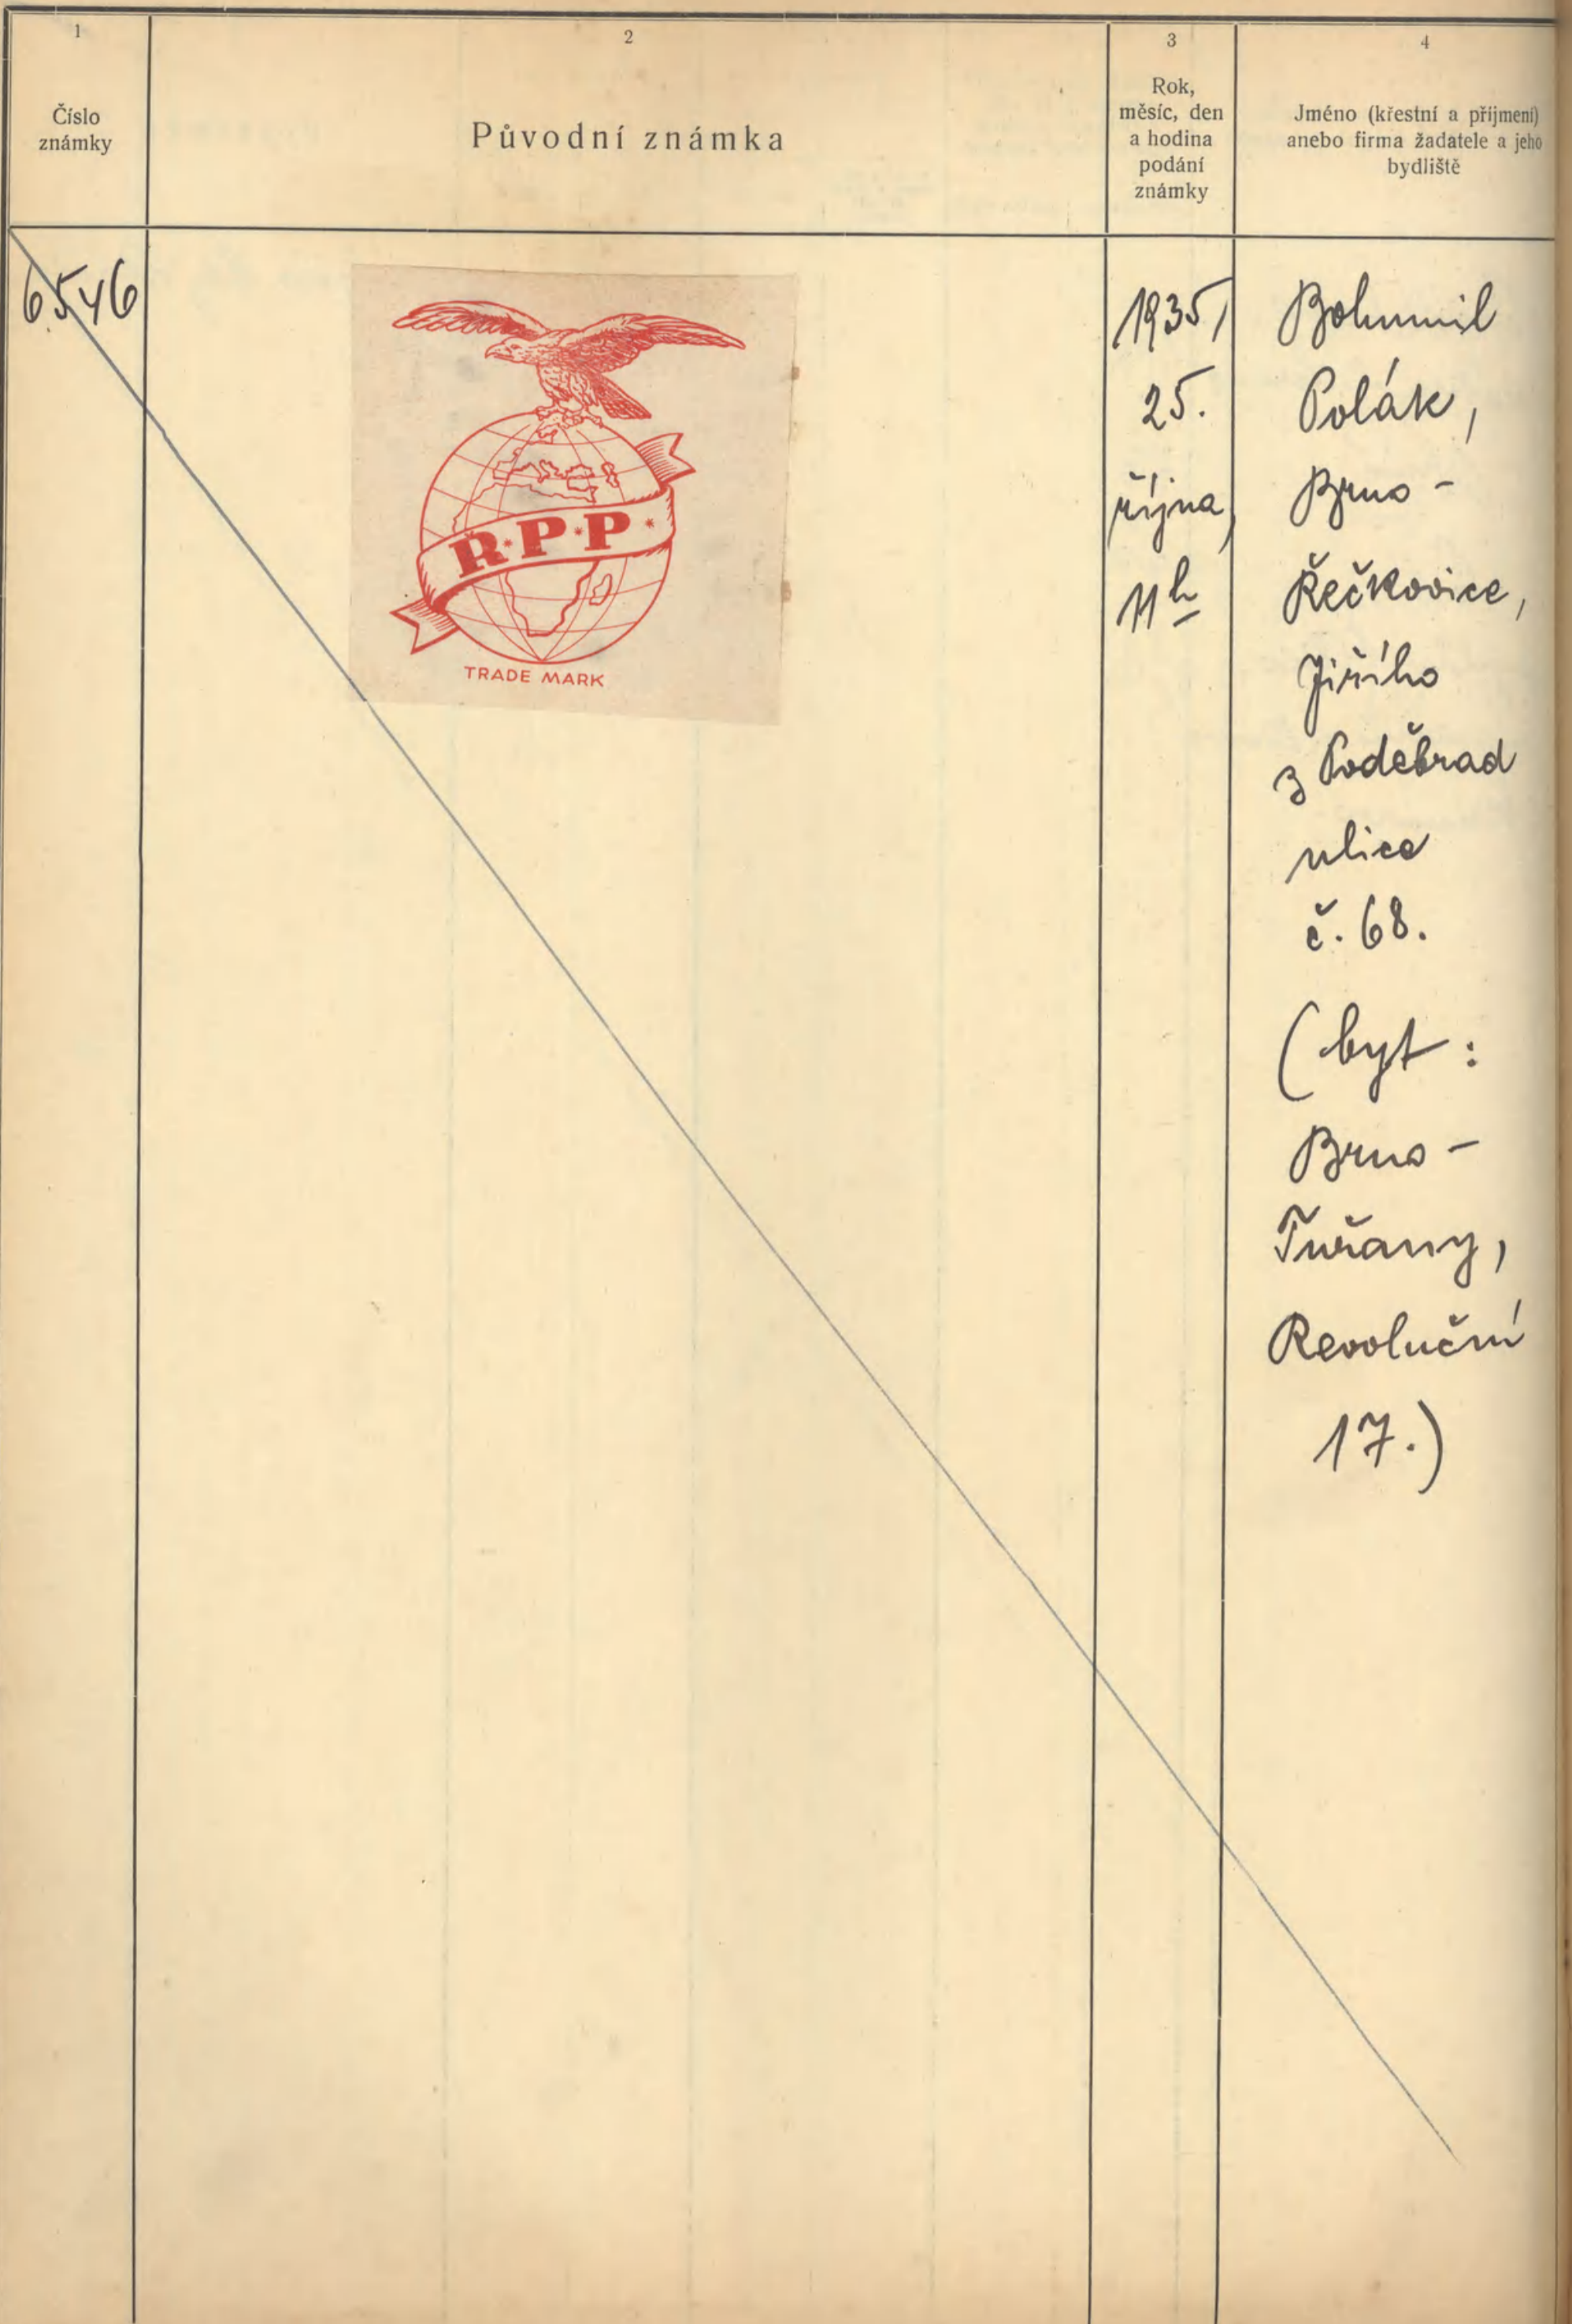 1
Číslo
známky
2
Původní známka
3
Rok,
měsíc, den
a hodina
podání
známky
4
Jméno (křestní a příjmení)
anebo firma žadatele a jeho
bydliště
6546
R·P·P·
TRADE MARK
1935,
25.
října,
11h
Bohumil
Polák,
Brno -
Řečkovice,
Jiřího
z Poděbrad
ulice
č. 68.
(byt:
Brno -
Tuřany,
Revoluční
17.)